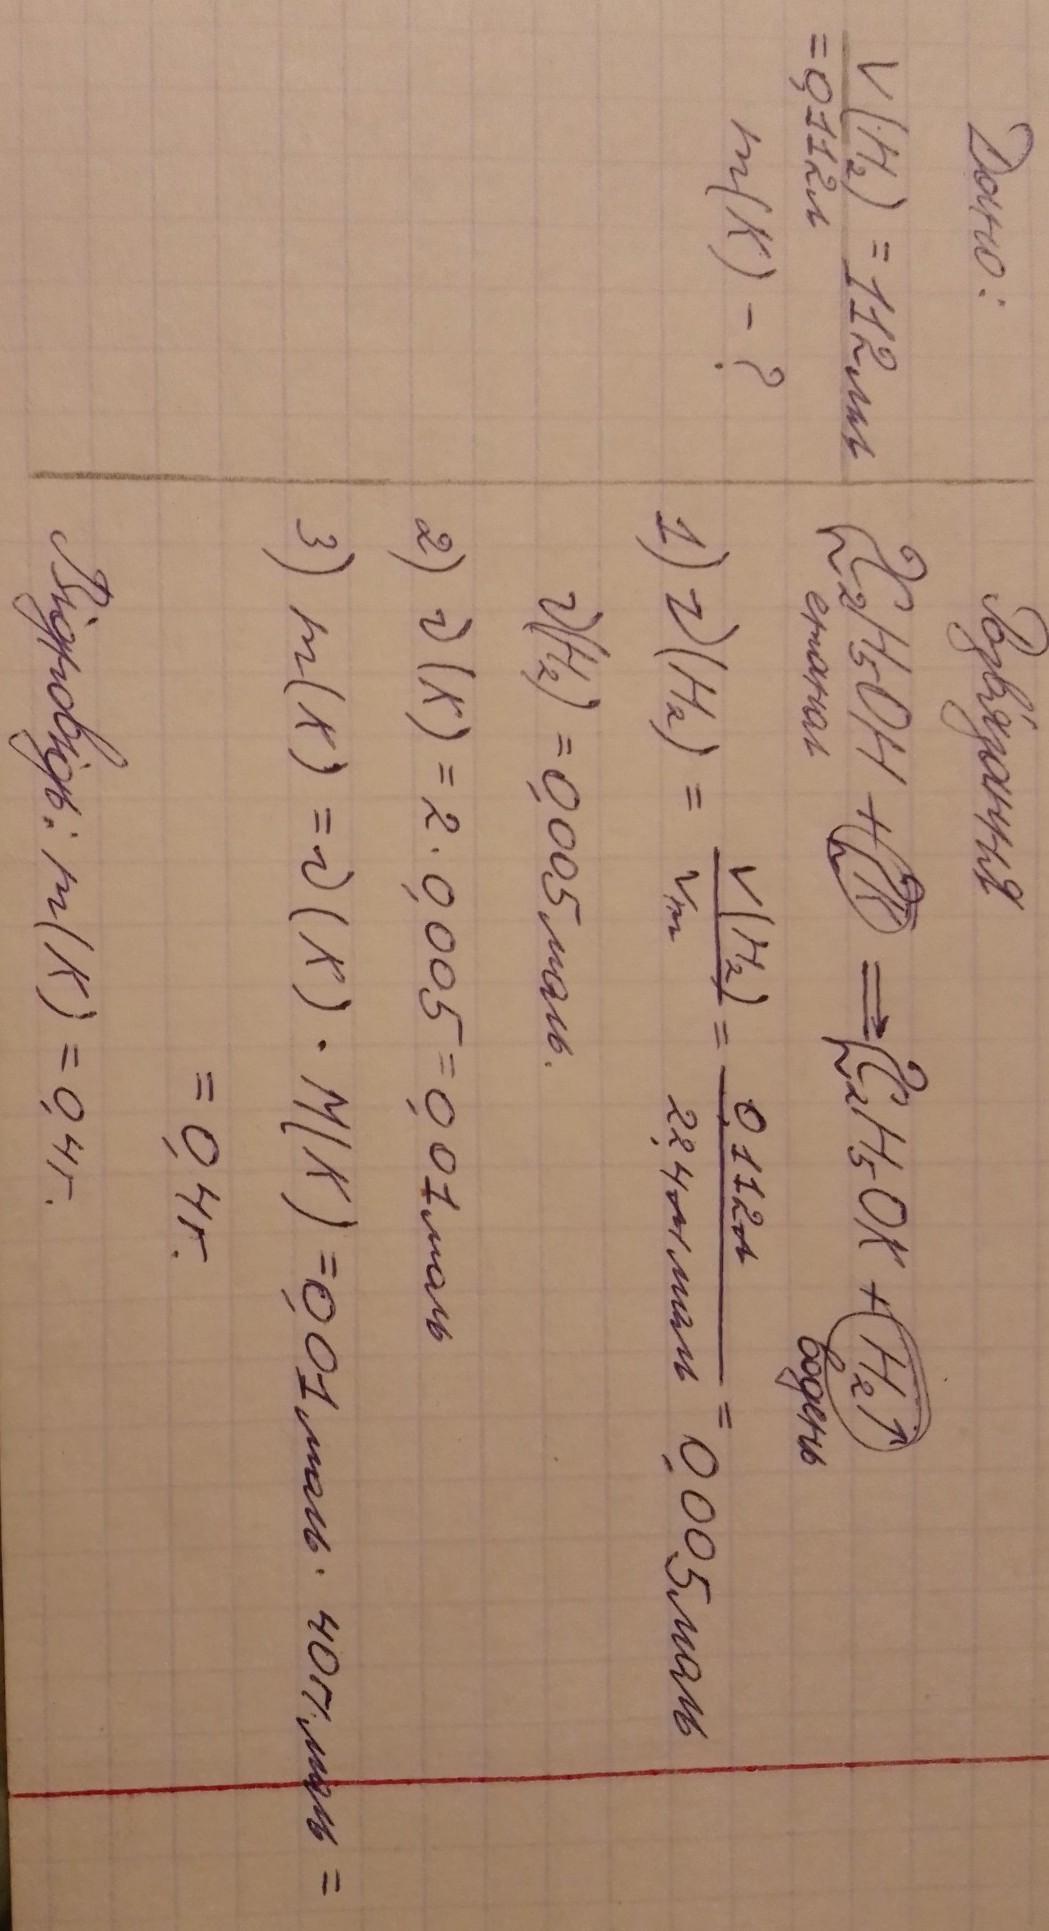 Дано:
V(H₂) = 112мл
= 0,112л
m(K) - ?
Розв'язання
2C₂H₅OH + 2K ⟹ 2C₂H₅OK + H₂↑
етанол водень
1) ν(H₂) = V(H₂)/Vm = 0,112л/22,4л/моль = 0,005моль
ν(H₂) = 0,005моль.
2) ν(K) = 2·0,005=0,01моль
3) m(K) = ν(K)·M(K) = 0,01моль·40г/моль =
= 0,4г.
Відповідь: m(K) = 0,4г.